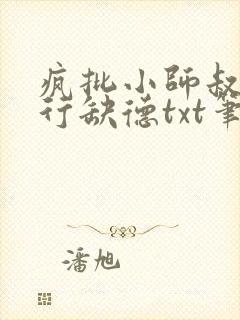 疯批小师叔
行缺德txt笔
潘旭